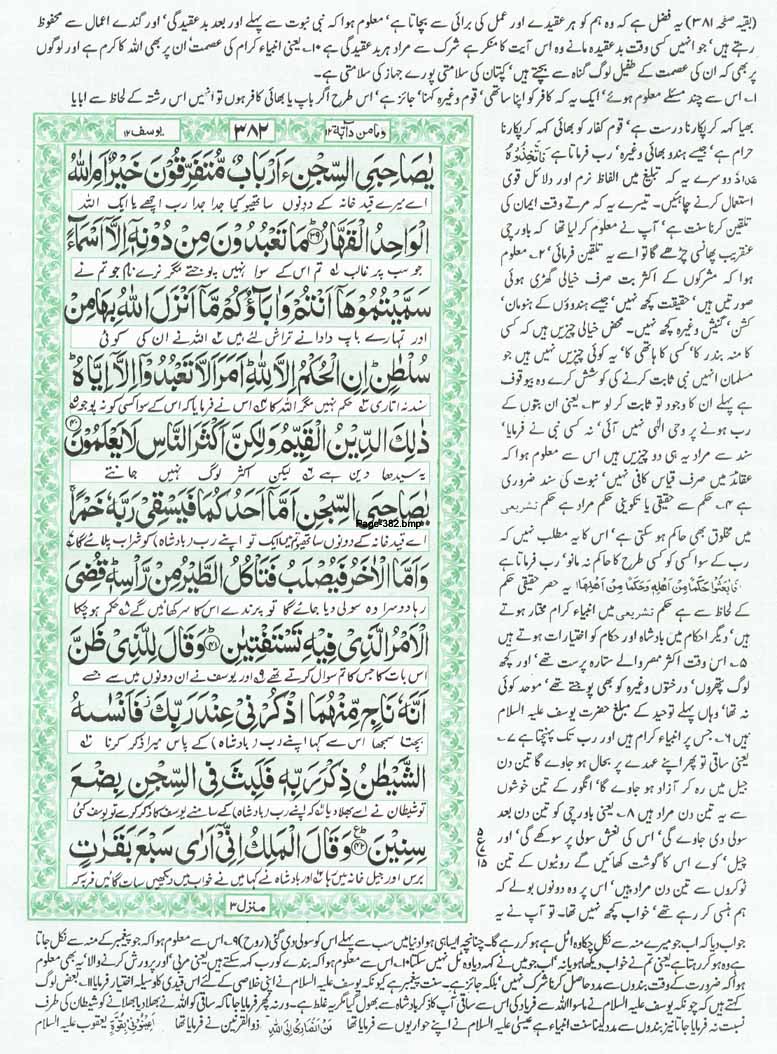 (بقیہ صفحہ ۳۸۱) یہ فضل ہے کہ وہ ہم کو ہر عقیدے اور عمل کی برائی سے بچاتا ہے' معلوم ہوا کہ نبی نبوت سے پہلے اور بعد بدعقیدگی' اور گندے اعمال سے محفوظ
رہتے ہیں' جو انہیں کسی وقت بدعقیدہ مانے وہ اس آیت کا منکر ہے شرک سے مراد ہر بدعقیدگی ہے ۱۰۔ یعنی انبیاء کرام کی عصمت ان پر بھی اللہ کا کرم ہے اور لوگوں
پر بھی کہ ان کی عصمت کے طفیل لوگ گناہ سے بچتے ہیں' کپتان کی سلامتی پورے جہاز کی سلامتی ہے۔
۱۔ اس سے چند مسئلے معلوم ہوئے' ایک یہ کہ کافر کو اپنا ساتھی' قوم وغیرہ کہنا' جائز ہے' اس طرح اگر باپ یا بھائی کافر ہوں تو انہیں اس رشتہ کے لحاظ سے ابا یا
ومامن دآبۃ ۱۲
۳۸۲
یوسف ۱۲
يٰصَاحِبَيِ السِّجْنِ ءَاَرْبَابٌ مُّتَفَرِّقُوْنَ خَيْرٌ اَمِ اللّٰهُ
اے میرے قید خانہ کے دونوں ساتھیو کیا جدا جدا رب اچھے یا ایک اللہ
الْوَاحِدُ الْقَهَّارُ ۳۹ مَا تَعْبُدُوْنَ مِنْ دُوْنِهٖٓ اِلَّآ اَسْمَآءً
جو سب پر غالب تم اس کے سوا نہیں پوجتے مگر نرے نام جو تم نے
سَمَّيْتُمُوْهَآ اَنْتُمْ وَاٰبَآؤُكُمْ مَّآ اَنْزَلَ اللّٰهُ بِهَا مِنْ
اور تمہارے باپ دادا نے تراش لئے ہیں اللہ نے ان کی کوئی
سُلْطٰنٍ اِنِ الْحُكْمُ اِلَّا لِلّٰهِ اَمَرَ اَلَّا تَعْبُدُوْٓا اِلَّآ اِيَّاهُ
سند نہ اتاری حکم نہیں مگر اللہ کا اس نے فرمایا کہ اس کے سوا کسی کو نہ پوجو
ذٰلِكَ الدِّيْنُ الْقَيِّمُ وَلٰكِنَّ اَكْثَرَ النَّاسِ لَا يَعْلَمُوْنَ ۴۰
یہ سیدھا دین ہے لیکن اکثر لوگ نہیں جانتے
يٰصَاحِبَيِ السِّجْنِ اَمَّآ اَحَدُكُمَا فَيَسْقِيْ رَبَّهٗ خَمْرًا
Page-382.bmp
اے قید خانہ کے دونوں ساتھیو تم میں ایک تو اپنے رب (بادشاہ) کو شراب پلائے گا
وَاَمَّا الْاٰخَرُ فَيُصْلَبُ فَتَاْكُلُ الطَّيْرُ مِنْ رَّاْسِهٖ قُضِيَ
رہا دوسرا وہ سولی دیا جائے گا تو پرندے اس کا سر کھائیں گے حکم ہو چکا
الْاَمْرُ الَّذِيْ فِيْهِ تَسْتَفْتِيٰنِ ۴۱ وَقَالَ لِلَّذِيْ ظَنَّ
اس بات کا جس کا تم سوال کرتے تھے اور یوسف نے ان دونوں میں سے جسے
اَنَّهٗ نَاجٍ مِّنْهُمَا اذْكُرْنِيْ عِنْدَ رَبِّكَ فَاَنْسٰىهُ
بچتا سمجھا اس سے کہا اپنے رب (بادشاہ) کے پاس میرا ذکر کرنا
الشَّيْطٰنُ ذِكْرَ رَبِّهٖ فَلَبِثَ فِي السِّجْنِ بِضْعَ
تو شیطان نے اسے بھلا دیا کہ اپنے رب (بادشاہ) کے سامنے یوسف کا ذکر کرے تو یوسف کئی
سِنِيْنَ ۴۲ وَقَالَ الْمَلِكُ اِنِّيْٓ اَرٰى سَبْعَ بَقَرٰتٍ
برس اور جیل خانہ میں رہا اور بادشاہ نے کہا میں نے خواب میں دیکھیں سات گائیں فربہ کہ
منزل ۳
بھیا کہہ کر پکارنا درست ہے' قوم کفار کو بھائی کہہ کر پکارنا
حرام ہے' جیسے ہندو بھائی وغیرہ' رب فرماتا ہے فَاتَّخِذُوْهُ
عَدُوًّا دوسرے یہ کہ تبلیغ میں الفاظ نرم اور دلائل قوی
استعمال کرنے چاہئیں۔ تیسرے یہ کہ مرتے وقت ایمان کی
تلقین کرنا سنت ہے' آپ نے معلوم کر لیا تھا کہ باورچی
عنقریب پھانسی چڑھے گا تو اسے یہ تلقین فرمائی' ۲۔ معلوم
ہوا کہ مشرکوں کے اکثر بت صرف خیالی گھڑی ہوئی
صورتیں ہیں' حقیقت کچھ نہیں' جیسے ہندوؤں کے ہنومان'
کشن' گنیش وغیرہ کچھ نہیں۔ محض خیالی چیزیں ہیں کہ کسی
کا منہ بندر کا' کسی کا ہاتھی کا' یہ کوئی چیزیں نہیں جو
مسلمان انہیں نبی ثابت کرنے کی کوشش کرے وہ بیوقوف
ہے پہلے ان کا وجود تو ثابت کر لو ۳۔ یعنی ان بتوں کے
رب ہونے پر وحی الٰہی نہیں آئی' نہ کسی نبی نے فرمایا'
سند سے مراد یہ ہی دو چیزیں ہیں اس سے معلوم ہوا کہ
عقائد میں صرف قیاس کافی نہیں' نبوت کی سند ضروری
ہے ۴۔ حکم سے حقیقی یا تکوینی حکم مراد ہے حکم تشریعی
میں مخلوق بھی حاکم ہو سکتی ہے' اس کا یہ مطلب نہیں کہ
رب کے سوا کسی کو کسی طرح کا حاکم نہ مانو' رب فرماتا ہے
فَابْعَثُوْا حَكَمًا مِّنْ اَهْلِهٖ وَحَكَمًا مِّنْ اَهْلِهَا یہ حصر حقیقی حکم
کے لحاظ سے ہے حکم تشریعی میں انبیاء کرام مختار ہوتے
ہیں' دیگر احکام میں بادشاہ اور حکام کو اختیارات ہوتے ہیں
۵۔ اس وقت اکثر مصر والے ستارہ پرست تھے' اور کچھ
لوگ پتھروں' درختوں وغیرہ کو بھی پوجتے تھے' موحد کوئی
نہ تھا' وہاں پہلے توحید کے مبلغ حضرت یوسف علیہ السلام
ہیں ۶۔ جس پر انبیاء کرام ہیں اور رب تک پہنچتا ہے ۷۔
یعنی ساقی تو پھر اپنے عہدے پر بحال ہو جاوے گا تین دن
جیل میں رہ کر آزاد ہو جاوے گا' انگور کے تین خوشوں
سے یہ تین دن مراد ہیں ۸۔ یعنی باورچی کو تین دن بعد
سولی دی جاوے گی' اس کی نعش سولی پر سوکھے گی' اور
چیل' کوے اس کا گوشت کھائیں گے روٹیوں کے تین
ٹوکروں سے تین دن مراد ہیں' اس پر وہ دونوں بولے کہ
ہم ہنسی کر رہے تھے' خواب کچھ نہیں تھا۔ تو آپ نے یہ
۵
ع
۱۵
جواب دیا کہ اب جو میرے منہ سے نکل چکا وہ اٹل ہے ہو کر رہے گا۔ چنانچہ ایسا ہی ہوا دنیا میں سب سے پہلے اس کو سولی دی گئی (روح) ۹۔ اس سے معلوم ہوا کہ جو پیغمبر کے منہ سے نکل جاتا
ہے وہ ہو کر رہتا ہے یعنی تم نے خواب دیکھا ہو یا نہ' اب جو میں نے کہہ دیا وہ ٹل نہیں سکتا ۱۰۔ اس سے معلوم ہوا کہ بندے کو رب کہہ سکتے ہیں یعنی مربی' اور پرورش کرنے والا' یہ بھی معلوم
ہوا کہ ضرورت کے وقت بندوں سے مدد حاصل کرنا شرک نہیں' بلکہ جائز ہے۔ سنت پیغمبر ہے کیونکہ یوسف علیہ السلام نے اپنی خلاصی کے لئے اس قیدی کا وسیلہ اختیار فرمایا ۱۱۔ بعض لوگ
کہتے ہیں کہ چونکہ یوسف علیہ السلام نے ماسوا اللہ سے فریاد کی اس سے ساقی آپ کا ذکر بادشاہ سے بھول گیا مگر یہ غلط ہے۔ ورنہ پھر فرمایا جاتا کہ ساقی کو اللہ نے بھلا دیا بھلانے کو شیطان کی طرف
نسبت نہ فرمایا جاتا نیز بندوں سے مدد لینا سنت انبیاء ہے عیسیٰ علیہ السلام نے اپنے حواریوں سے فرمایا تھا مَنْ اَنْصَارِيْ اِلَى اللّٰهِ ذوالقرنین نے فرمایا تھا اَعِيْنُوْنِيْ بِقُوَّةٍ یعقوب علیہ السلام